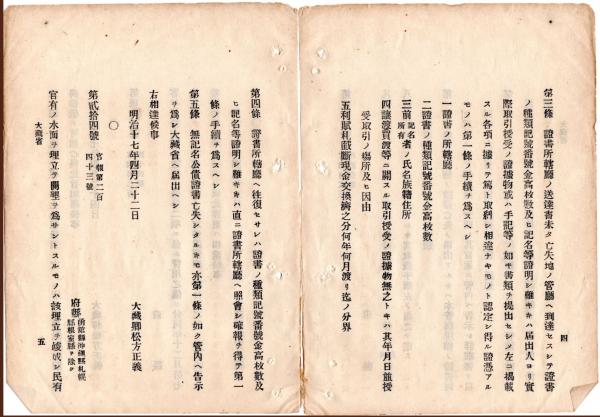 第三條 證書所轄廳ノ送達書未タ亡失地ノ管廳ヘ到達セスシテ證書
ノ種類記號番號金高枚數及ヒ記名等證明シ難キキハ届出人ヨリ實
際取引授受ノ證據物或ハ手記等ノ如キ書類ヲ提出セシメ左ニ掲載
スル各項ニ據リテ篤ト取糾シ相違ナキモノト認定シ得ル證憑アル
モノハ第一條ノ手續ヲ爲スヘシ
一證書ノ所轄廳
二證書ノ種類記號番號金高枚數
三前記名者ノ氏名族籍住所
所有
四讓渡賣買等ニ關スル取引授受ノ證據物無之トキハ其年月日並授
受取引ノ場所及ヒ因由
五利賦札截斷現金交換濟之分何年何月渡リ迄ノ分界
四
第四條 證書所轄廳ヘ往復セサレハ證書ノ種類記號番號金高枚數及
ヒ記名等證明シ難キキハ直ニ證書所轄廳ヘ照會シ確報ヲ得テ第一
條ノ手續ヲ爲スヘシ
第五條 無記名公債證書亡失シタルキモ亦第一條ノ如ク管内ヘ告示
ヲ爲シ大藏省ヘ届出ヘシ
右相達候事
明治十七年四月二十二日
大藏卿松方正義
〇
第貳拾四號 官報第二百
四十三號
府縣
官有ノ水面ヲ埋立テ開墾ヲ爲サントスルモノハ該埋立テ竣成シ民有
大藏省
五